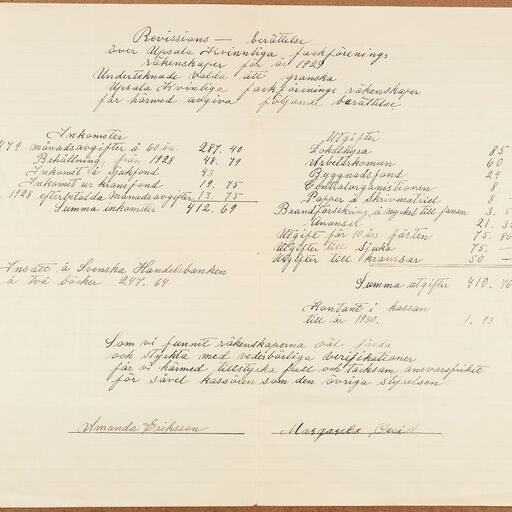 Revissions — berättelse
över Upsala Kvinnliga fackförenings
räkenskaper för år 1929
Undertecknade valda att granska
Upsala Kvinliga fackförenings räkenskaper
får härmed avgiva följande berättelse
Inkomster
479 månadsavgifter à 60 öre 287.40
Behållning från 1928 48.79
Inkomst å Sjukfond 43
Inkomst ur kransfond 19.75
1928 efterbetalda månadsavgifter 13.75
Summa inkomster 412.69
Insatt å Svenska Handelsbanken
å två böcker 247.64
Utgifter
Lokalhyra 85
Arbetarkomun 60
Byggnadsfond 24
Centralorganistionen 8
Papper & Skrivmatriel 8 —
Brandförsäkring å nyckel till fanan 3.5
Anonser 21.3
Utgift för 10 års fästen 75.80
Utgifter till Sjuka 75. —
Utgifter till kranssar 50 —
Summa utgifter 410.76
Kontant i kassan
till år 1930. 1.93
Som vi funnit räkenskaperna väl förda
och styrkta med vederbörliga verifikationer
får vi härmed tillstyrka full och tacksam ansvarsfrihet
för såväl kassören som den övriga styrelsen
Amanda Eriksson
Margareta